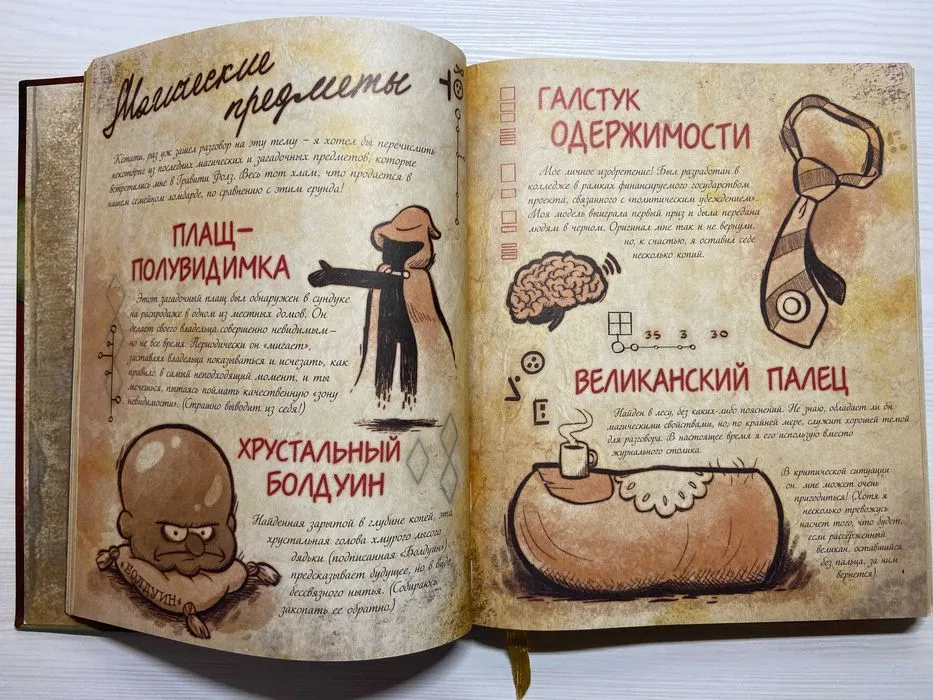 Магические
предметы
Кстати, раз уж зашел разговор на эту тему – я хотел бы перечислить
некоторые из последных магических и загадочных предметов, которые
встретились мне в Гравити Фолз. Весь тот хлам, что продается в
нашем семейном ломбарде, по сравнению с этим ерунда!
ПЛАЩ-
ПОЛУВИДИМКА
Этот загадочный плащ был обнаружен в сундуке
на распродаже в одном из местных домов. Он
делает своего владельца совершенно невидимым –
но не все время. Периодически он «мигает»,
заставляя владельца показываться и исчезать, как
правило, в самый неподходящий момент, и ты
мечешься, пытаясь поймать качественную «зону
невидимости». (Страшно выводит из себя!)
ХРУСТАЛЬНЫЙ
БОЛДУИН
Найденная зарытой в глубине копей, эта
хрустальная голова хмурого лысого
дядьки (подписанная «Болдуин»)
предсказывает будущее, но в виде
бессвязного нытья. (Собираюсь
закопать ее обратно.)
БОЛДУИН
ГАЛСТУК
ОДЕРЖИМОСТИ
Мое личное изобретение! Был разработан в
колледже в рамках финансируемого государством
проекта, связанного с «политическим убеждением».
Моя модель выиграла первый приз и была передана
людям в черном. Оригинал мне так и не вернули,
но, к счастью, я оставил себе
несколько копий.
35 3 30
ВЕЛИКАНСКИЙ ПАЛЕЦ
Найден в лесу, без каких-либо пояснений. Не знаю, обладает ли он
магическими свойствами, но, по крайней мере, служит хорошей темой
для разговора. В настоящее время я его использую вместо
журнального столика.
В критической ситуации
он мне может очень
пригодиться! (Хотя я
несколько тревожусь
насчет того, что будет,
если рассерженный
великан, оставшийся
без пальца, за ним
вернется).